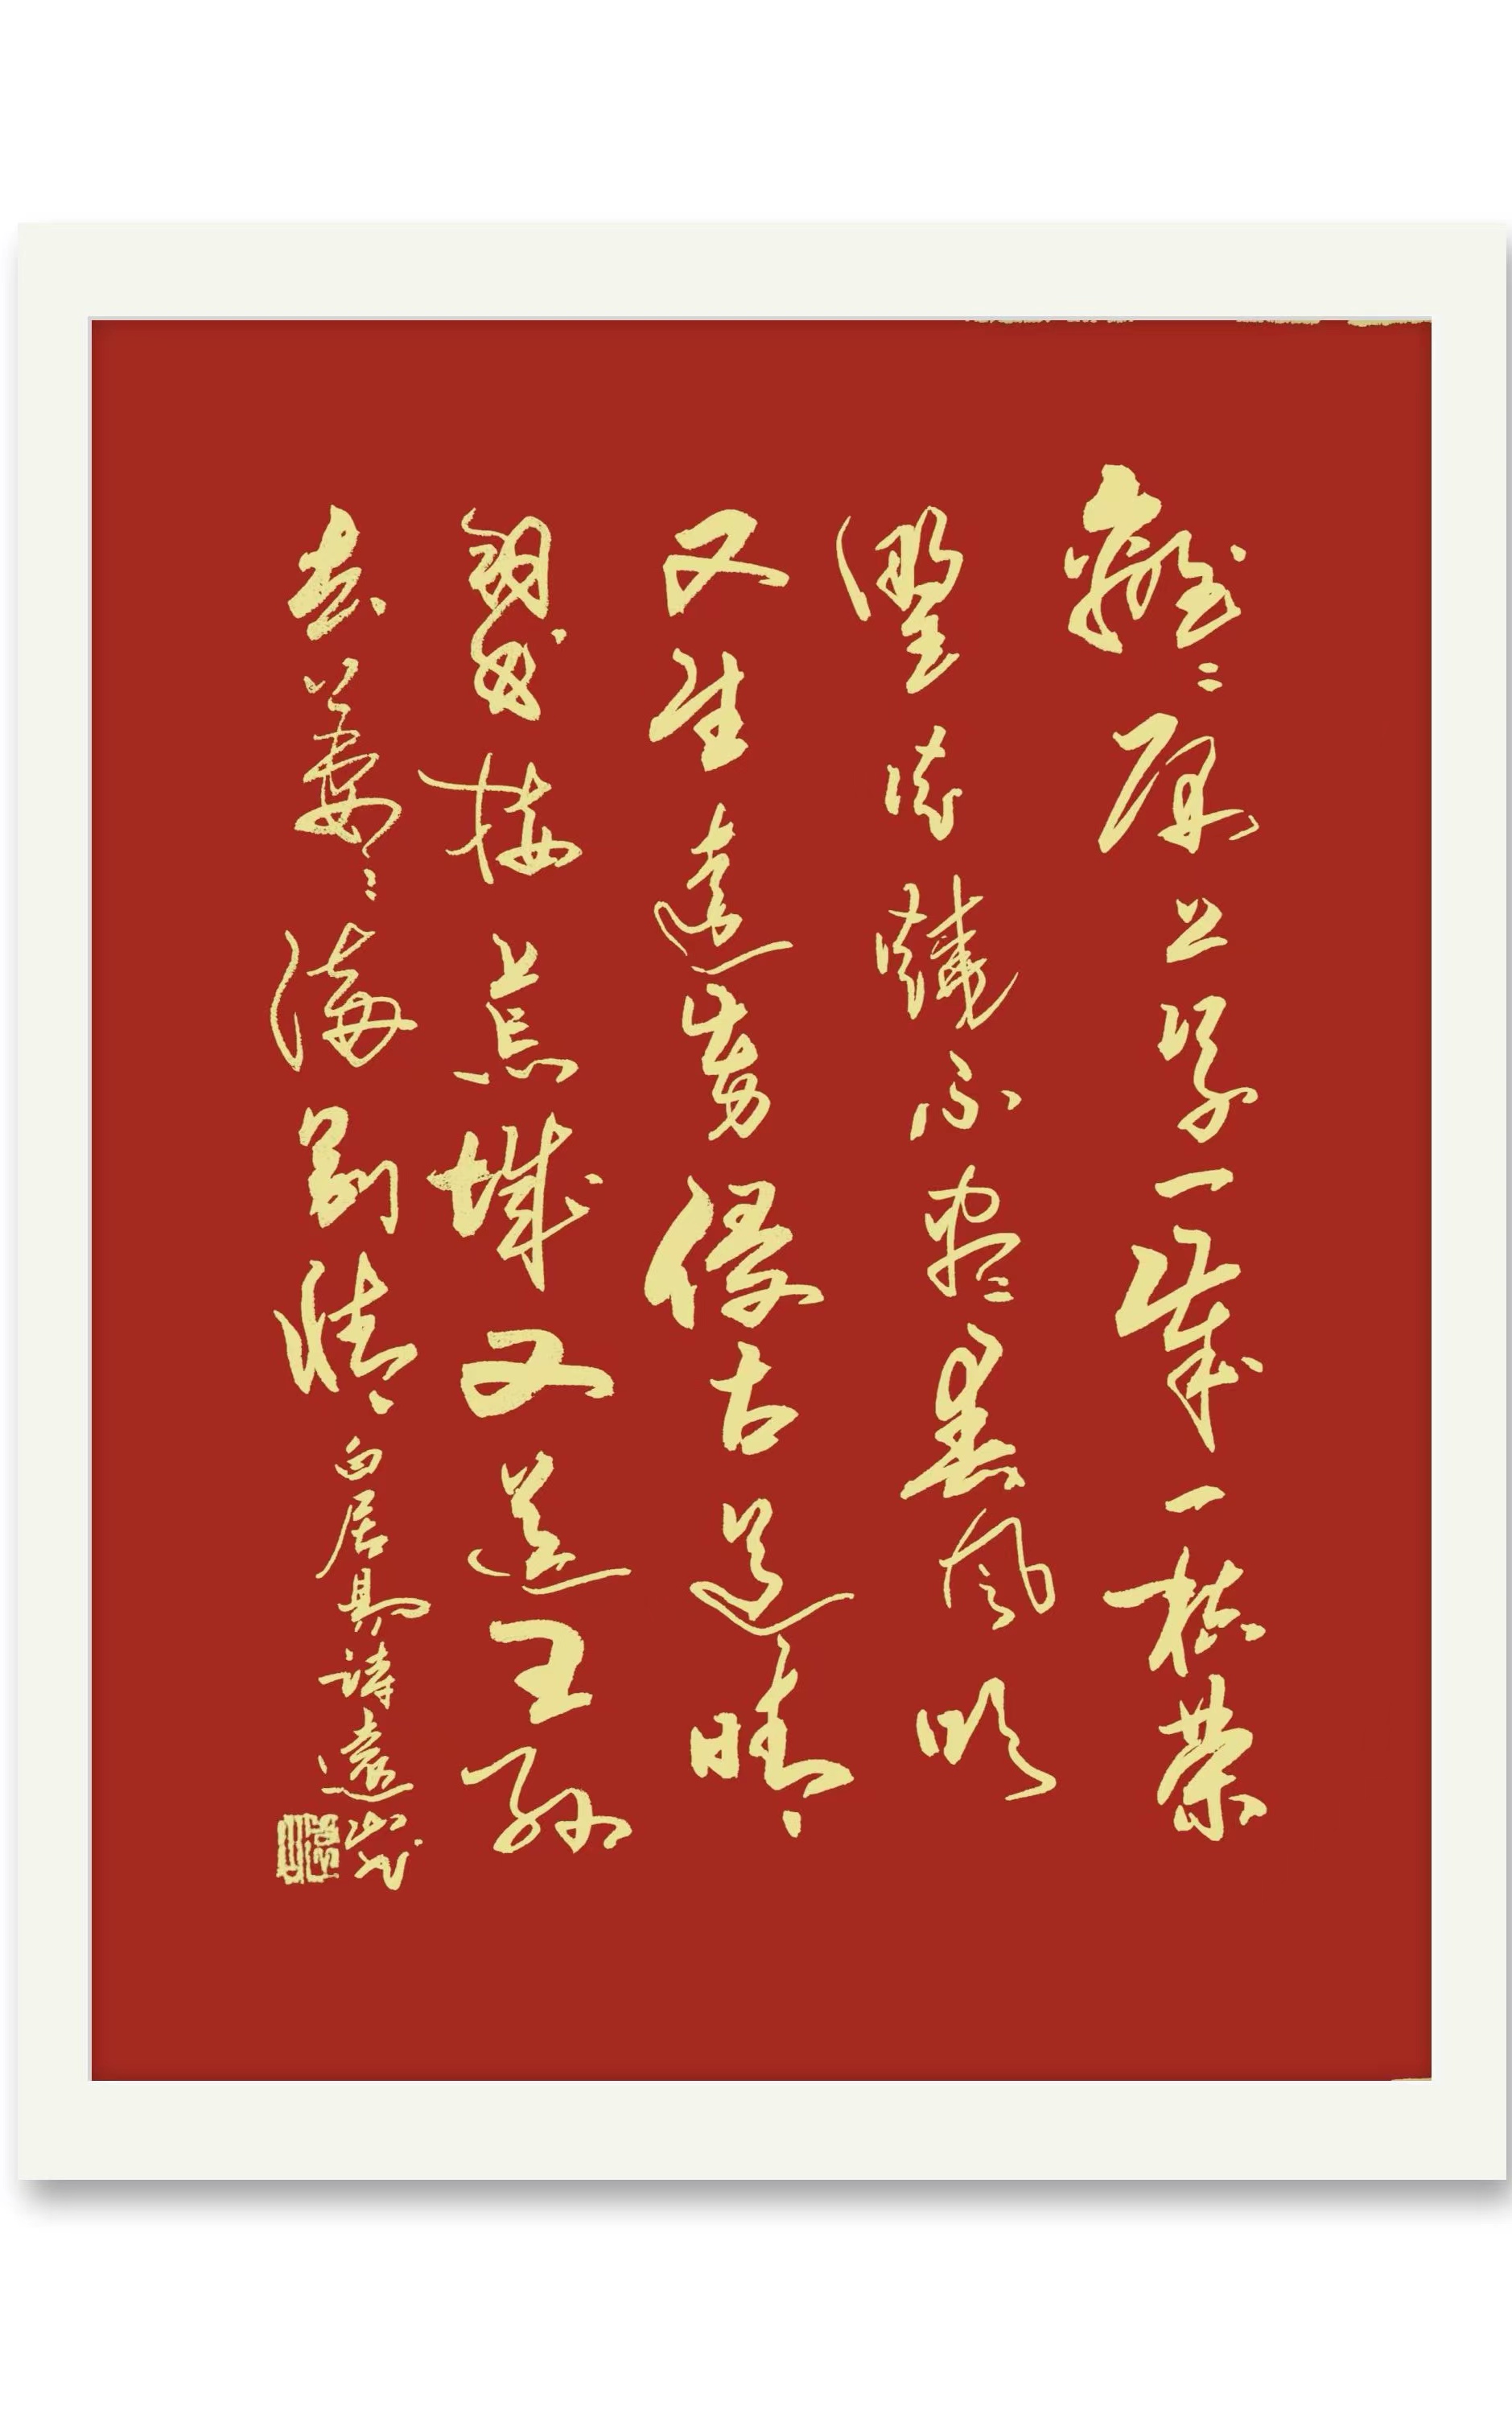 離離原上草一歲一枯榮
野火燒不盡春風吹
又生遠芳侵古道晴
翠接荒城又送王孫
去萋萋滿別情白居易詩